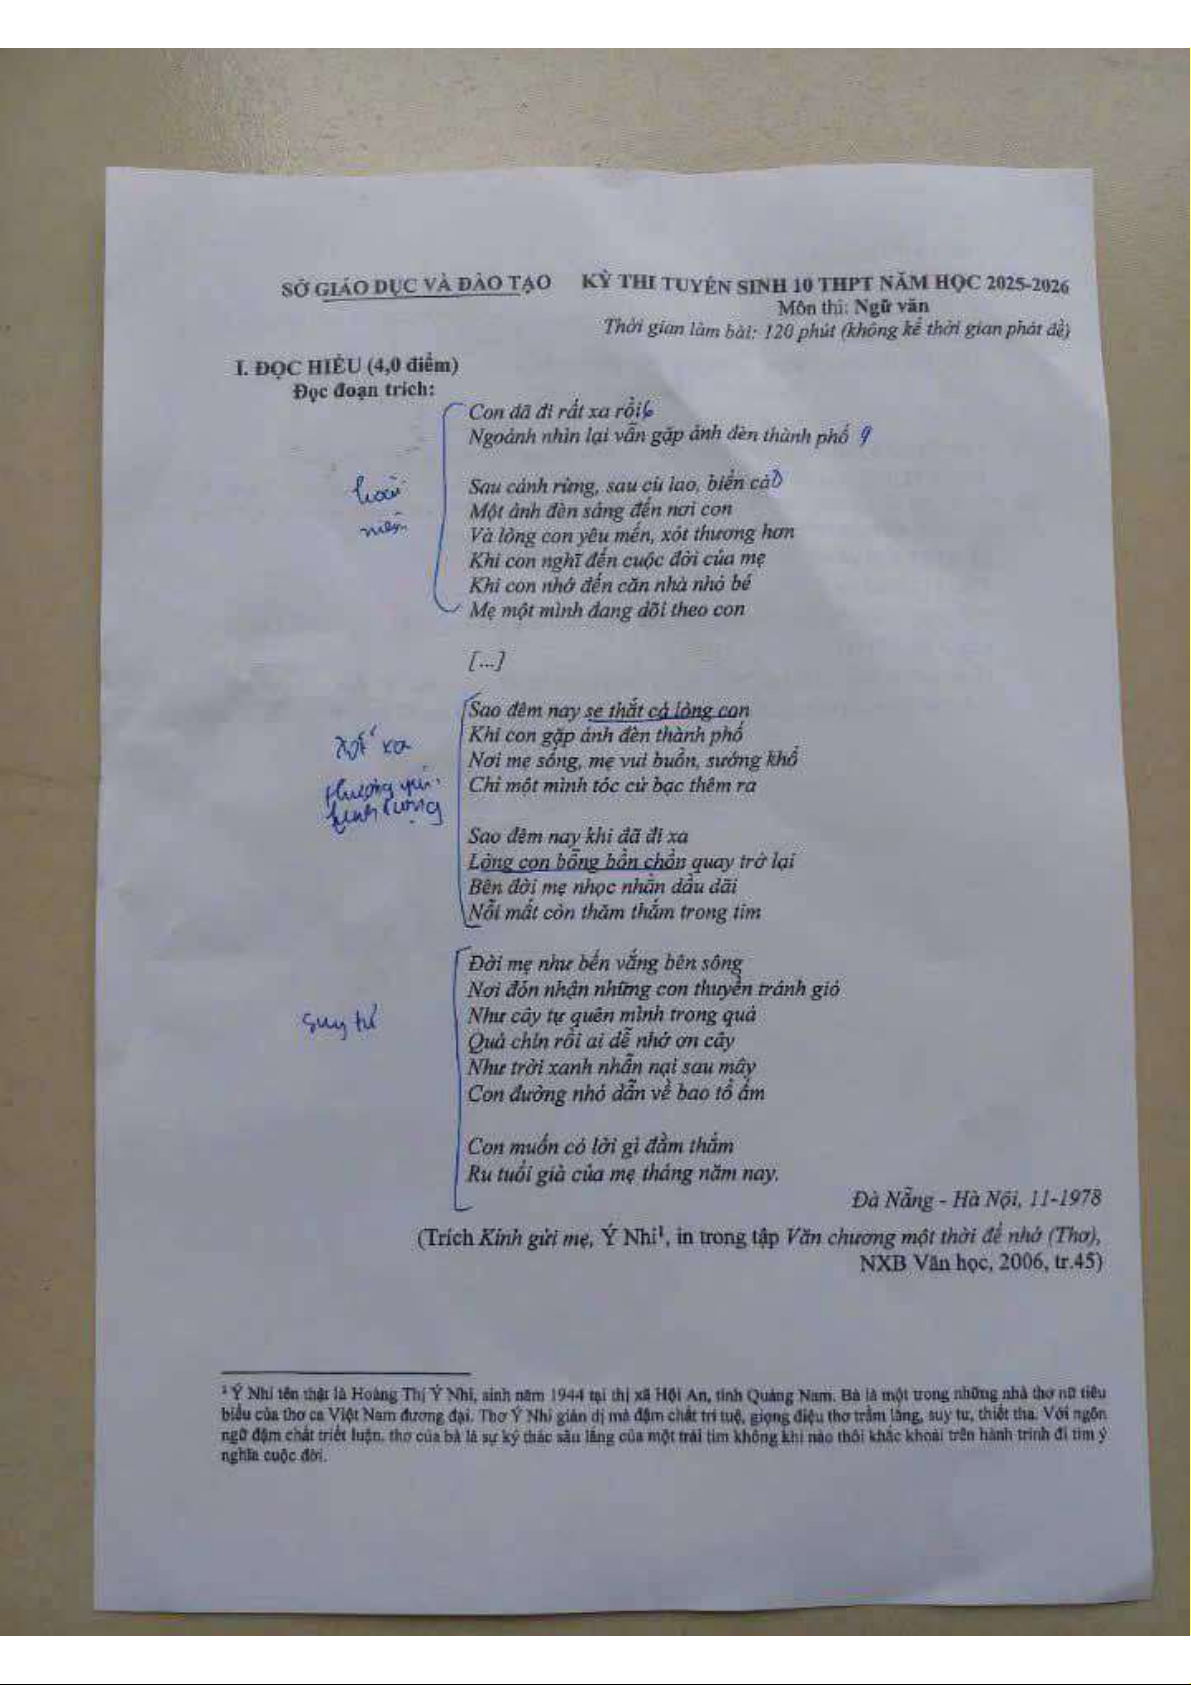 SỞ GIÁO DỤC VÀ ĐÀO TẠO
KỲ THI TUYỂN SINH 10 THPT NĂM HỌC 2025-2026
Môn thi: Ngữ văn
Thời gian làm bài: 120 phút (không kể thời gian phát đề)
I. ĐỌC HIỂU (4,0 điểm)
Đọc đoạn trích:
Con đã đi rất xa rồi
Ngoảnh nhìn lại vẫn gặp ánh đèn thành phố
hoài
niệm
Sau cánh rừng, sau cù lao, biển cả
Một ánh đèn sáng đến nơi con
Và lòng con yêu mến, xót thương hơn
Khi con nghĩ đến cuộc đời của mẹ
Khi con nhớ đến căn nhà nhỏ bé
Mẹ một mình đang dõi theo con
[...]
Sao đêm nay se thắt cả lòng con
Khi con gặp ánh đèn thành phố
Nơi mẹ sống, mẹ vui buồn, sướng khổ
Chỉ một mình tóc cứ bạc thêm ra
xót xa
Sao đêm nay khi đã đi xa
Lòng con bỗng bồn chồn quay trở lại
Bên đời mẹ nhọc nhằn dầu dãi
Nỗi mất còn thăm thẳm trong tim
Đời mẹ như bến vắng bên sông
Nơi đón nhận những con thuyền tránh gió
Như cây tự quên mình trong quả
Quả chín rồi ai dễ nhớ ơn cây
Như trời xanh nhẫn nại sau mây
Con đường nhỏ dẫn về bao tổ ấm
suy tư
Con muốn có lời gì đằm thắm
Ru tuổi già của mẹ tháng năm nay.
Đà Nẵng - Hà Nội, 11-1978
(Trích Kính gửi mẹ, Ý Nhi¹, in trong tập Văn chương một thời để nhớ (Thơ),
NXB Văn học, 2006, tr.45)
¹ Ý Nhi tên thật là Hoàng Thị Ý Nhi, sinh năm 1944 tại thị xã Hội An, tỉnh Quảng Nam. Bà là một trong những nhà thơ nữ tiêu
biểu của thơ ca Việt Nam đương đại. Thơ Ý Nhi giản dị mà đậm chất trí tuệ, giọng điệu thơ trầm lắng, suy tư, thiết tha. Với ngôn
ngữ đậm chất triết luận, thơ của bà là sự ký thác sâu lắng của một trái tim không khi nào thôi khắc khoải trên hành trình đi tìm ý
nghĩa cuộc đời.